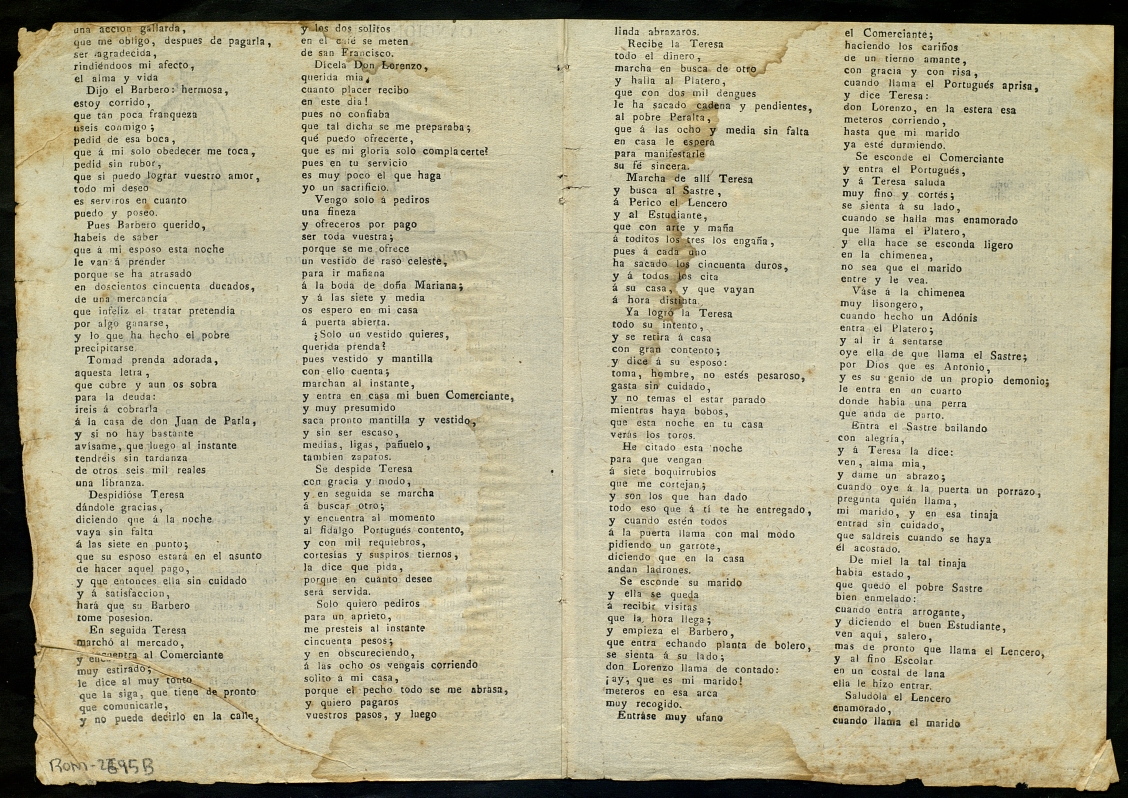 una accion gallarda,
que me obligo, despues de pagarla,
ser agradecida,
rindiéndoos mi afecto,
el alma y vida
Dijo el Barbero: hermosa,
estoy corrido,
que tan poca franqueza
useis conmigo;
pedid de esa boca,
que á mi solo obedecer me toca,
pedid sin rubor,
que si puedo lograr vuestro amor,
todo mi deseo
es serviros en cuanto
puedo y poseo.
Pues Barbero querido,
habeis de saber
que á mi esposo esta noche
le van á prender
porque se ha atrasado
en doscientos cincuenta ducados,
de una mercancía
que infeliz el tratar pretendia
por algo ganarse,
y lo que ha hecho el pobre
precipitarse.
Tomad prenda adorada,
aquesta letra,
que cubre y aun os sobra
para la deuda:
ireis á cobrarla
á la casa de don Juan de Parla,
y si no hay bastante
avísame, que luego al instante
tendréis sin tardanza
de otros seis mil reales
una libranza.
Despidióse Teresa
dándole gracias,
diciendo que á la noche
vaya sin falta
á las siete en punto;
que su esposo estará en el asunto
de hacer aquel pago,
y que entonces ella sin cuidado
y á satisfaccion,
hará que su Barbero
tome posesion.
En seguida Teresa
marchó al mercado,
y encuentra al Comerciante
muy estirado;
le dice al muy tonto
que la siga, que tiene de pronto
que comunicarle,
y no puede decirlo en la calle,
y los dos solitos
en el café se meten
de san Francisco.
Dicela Don Lorenzo,
querida mia,
cuanto placer recibo
en este dia!
pues no confiaba
que tal dicha se me preparaba;
qué puedo ofrecerte,
que es mi gloria solo complacerte?
pues en tu servicio
es muy poco el que haga
yo un sacrificio.
Vengo solo á pediros
una fineza
y ofreceros por pago
ser toda vuestra;
porque se me ofrece
un vestido de raso celeste,
para ir mañana
á la boda de doña Mariana;
y á las siete y media
os espero en mi casa
á puerta abierta.
¿Solo un vestido quieres,
querida prenda?
pues vestido y mantilla
con ello cuenta;
marchan al instante,
y entra en casa mi buen Comerciante,
y muy presumido
saca pronto mantilla y vestido,
y sin ser escaso,
medias, ligas, pañuelo,
tambien zapatos.
Se despide Teresa
con gracia y modo,
y en seguida se marcha
á buscar otro;
y encuentra al momento
al fidalgo Portugués contento,
y con mil requiebros,
cortesias y suspiros tiernos,
la dice que pida,
porque en cuanto desee
será servida.
Solo quiero pediros
para un aprieto,
me presteis al instante
cincuenta pesos;
y en obscureciendo,
á las ocho os vengais corriendo
solito á mi casa,
porque el pecho todo se me abrasa,
y quiero pagaros
vuestros pasos, y luego
linda abrazaros.
Recibe la Teresa
todo el dinero,
marcha en busca de otro
y halla al Platero,
que con dos mil dengues
le ha sacado cadena y pendientes,
al pobre Peralta,
que á las ocho y media sin falta
en casa le espera
para manifestarle
su fé sincera.
Marcha de allí Teresa
y busca al Sastre,
á Perico el Lencero
y al Estudiante,
que con arte y maña
á toditos los tres los engaña,
pues á cada uno
ha sacado los cincuenta duros,
y á todos los cita
á su casa, y que vayan
á hora distinta.
Ya logró la Teresa
todo su intento,
y se retira á casa
con gran contento;
y dice á su esposo:
toma, hombre, no estés pesaroso,
gasta sin cuidado,
y no temas el estar parado
mientras haya bobos,
que esta noche en tu casa
verás los toros.
He citado esta noche
para que vengan
á siete boquirrubios
que me cortejan;
y son los que han dado
todo eso que á tí te he entregado,
y cuando estén todos
á la puerta llama con mal modo
pidiendo un garrote,
diciendo que en la casa
andan ladrones.
Se esconde su marido
y ella se queda
á recibir visitas
que la hora llega;
y empieza el Barbero,
que entra echando planta de bolero,
se sienta á su lado;
don Lorenzo llama de contado:
¡ay, que es mi marido!
meteros en esa arca
muy recogido.
Entrase muy ufano
el Comerciante;
haciendo los cariños
de un tierno amante,
con gracia y con risa,
cuando llama el Portugués aprisa,
y dice Teresa:
don Lorenzo, en la estera esa
meteros corriendo,
hasta que mi marido
ya esté durmiendo.
Se esconde el Comerciante
y entra el Portugués,
y á Teresa saluda
muy fino y cortés;
se sienta á su lado,
cuando se halla mas enamorado
que llama el Platero,
y ella hace se esconda ligero
en la chimenea,
no sea que el marido
entre y le vea.
Váse á la chimenea
muy lisongero,
cuando hecho un Adónis
entra el Platero;
y al ir á sentarse
oye ella de que llama el Sastre;
por Dios que es Antonio,
y es su genio de un propio demonio;
le entra en un cuarto
donde habia una perra
que anda de parto.
Entra el Sastre bailando
con alegría,
y á Teresa la dice:
ven, alma mia,
y dame un abrazo;
cuando oye á la puerta un porrazo,
pregunta quién llama,
mi marido, y en esa tinaja
entrad sin cuidado,
que saldreis cuando se haya
él acostado.
De miel la tal tinaja
habia estado,
que quedó el pobre Sastre
bien enmelado:
cuando entra arrogante,
y diciendo el buen Estudiante,
ven aquí, salero,
mas de pronto que llama el Lencero,
y al fino Escolar
en un costal de lana
ella le hizo entrar.
Saludóla el Lencero
enamorado,
cuando llama el marido
Rom-2695B